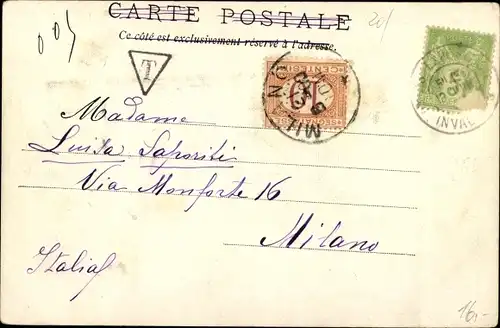 CARTE POSTALE
Ce côté est exclusivement réservé à l'adresse.
20/
T
10
CENTESIMI
MILANO
INVAL
Madame
Luisa Saporiti
Via Monforte 16
Milano
Italia
16.-